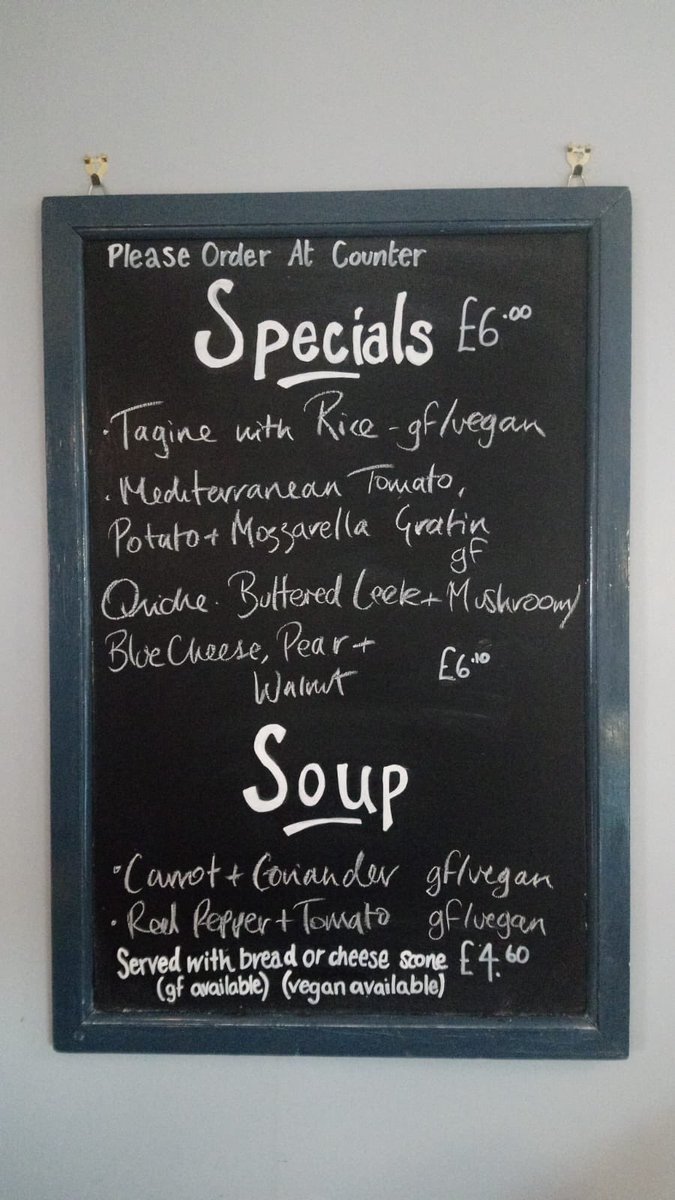 Please Order At Counter
Specials £6.00
· Tagine with Rice - gf/vegan
· Mediterranean Tomato,
Potato + Mozzarella Gratin
gf
Quiche. Buttered Leek + Mushroom/
Blue Cheese, Pear +
Walnut £6.10
Soup
· Carrot + Coriander gf/vegan
· Red Pepper + Tomato gf/vegan
Served with bread or cheese scone £4.60
(gf available) (vegan available)